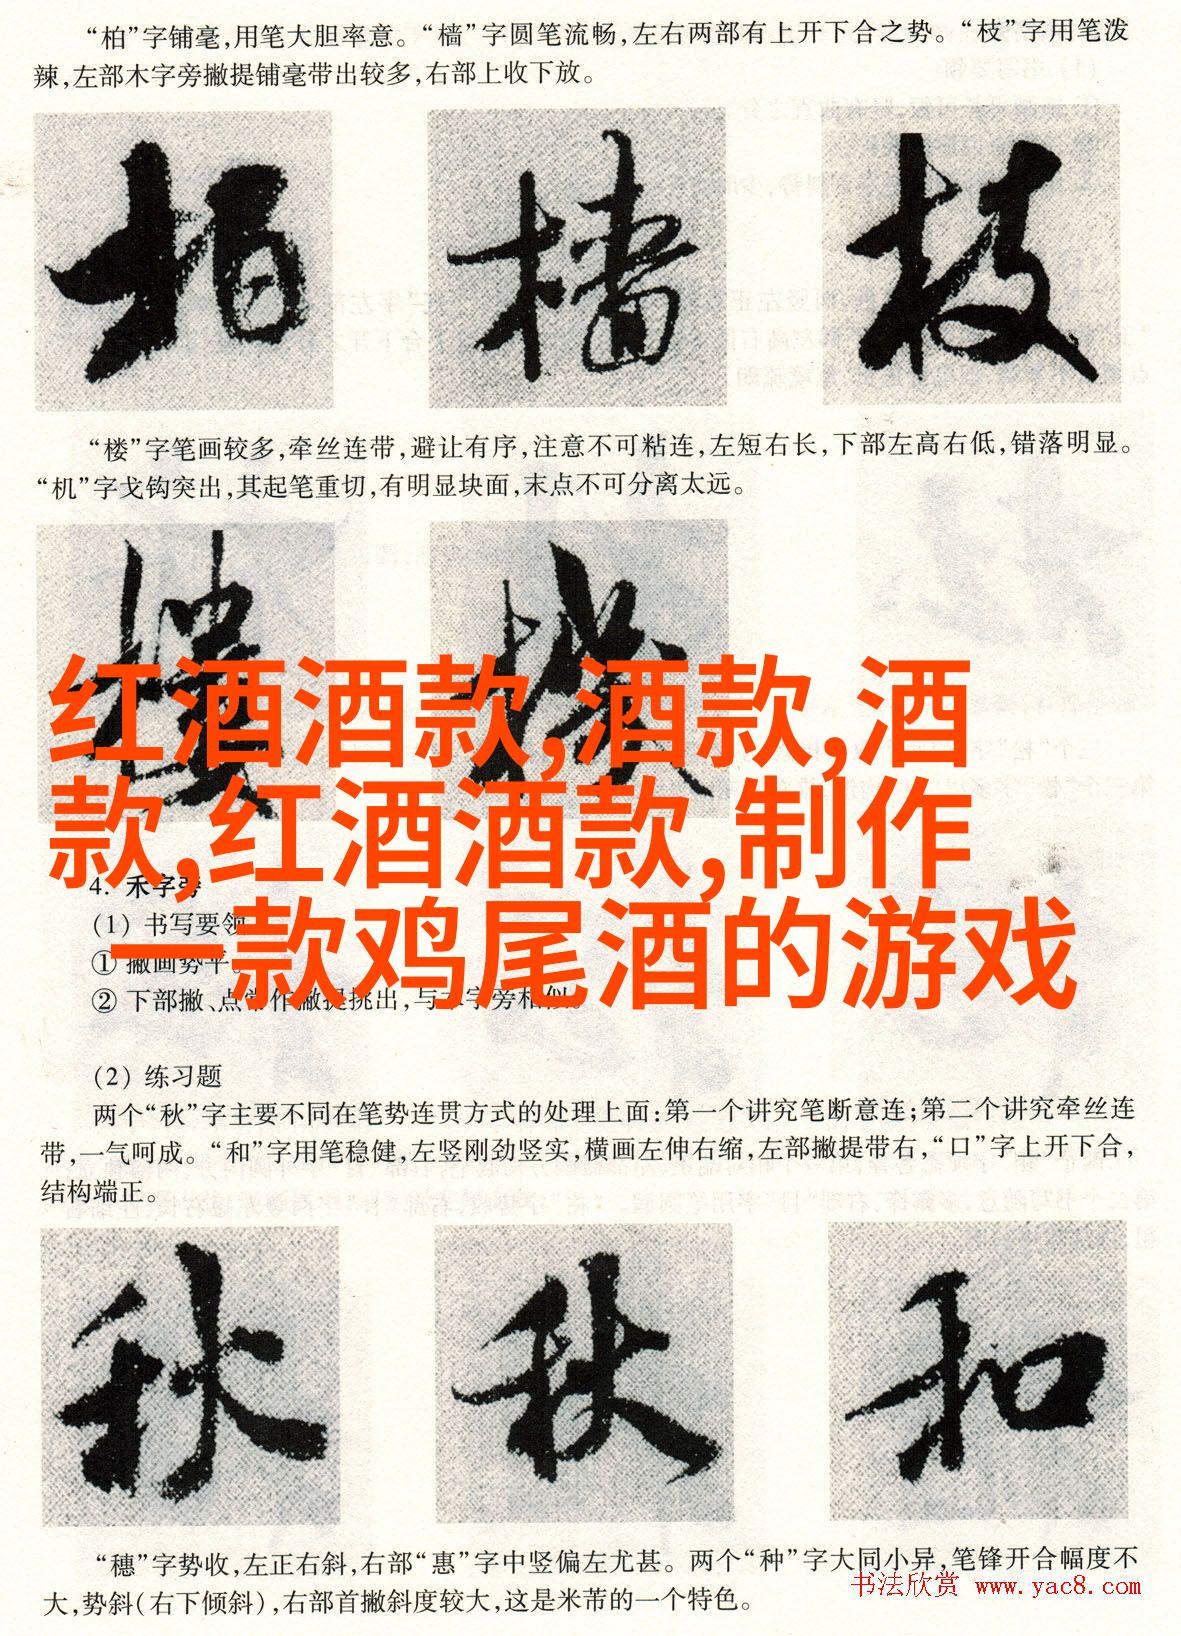 “柏”字铺毫,用笔大胆率意。“樯”字圆笔流畅,左右两部有上开下合之势。“枝”字用笔泼
辣,左部木字旁撇提铺毫带出较多,右部上收下放。
柏 樯 枝
“楼”字笔画较多,牵丝连带,避让有序,注意不可粘连,左短右长,下部左高右低,错落明显。
“机”字戈钩突出,其起笔重切,有明显块面,末点不可分离太远。
红酒酒款,酒款,酒
款,红酒酒款,制作
一款鸡尾酒的游戏
4. 禾字旁
(1) 书写要领
① 撇画势平。
② 下部撇、点常作撇提挑出,与木字旁相似。
(2) 练习题
两个“秋”字主要不同在笔势连贯方式的处理上面:第一个讲究笔断意连;第二个讲究牵丝连
带,一气呵成。“和”字用笔稳健,左竖刚劲竖实,横画左伸右缩,左部撇提带右,“口”字上开下合,
结构端正。
秋 秋 和
“穗”字势收,左正右斜,右部“惠”字中竖偏左尤甚。两个“种”字大同小异,笔锋开合幅度不
大,势斜(右下倾斜),右部首撇斜度较大,这是米芾的一个特色。
书法欣赏 www.yac8.com